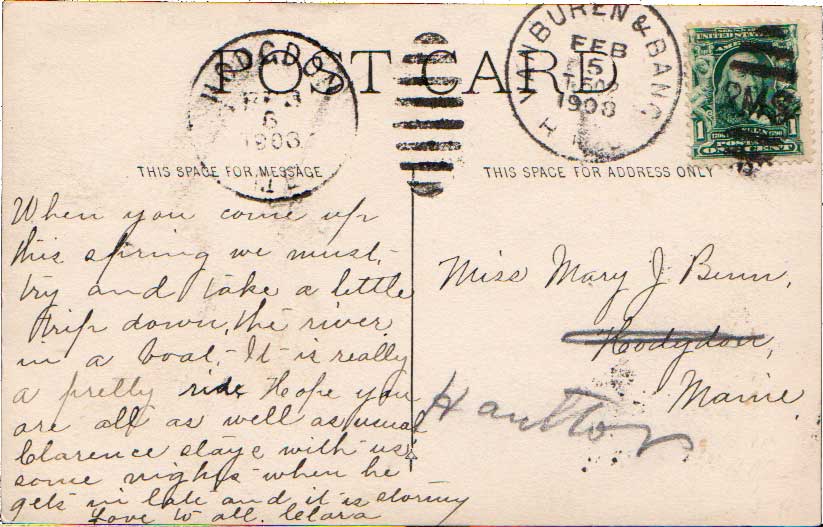 POST CARD
HODGDON
FEB
6
1908
ME
VANBUREN & BANG
FEB
5
1908
R.P.O.
UNITED STATES
POSTAGE
1 ONE CENT 1
THIS SPACE FOR MESSAGE
THIS SPACE FOR ADDRESS ONLY
When you come up
this spring we must
try and take a little
trip down, the river
in a boat,- It is really
a pretty ride Hope you
are all as well as usual
Clarence stays with us
some nights when he
gets in late and it is stormy
Love to all. Clara
Miss Mary J Benn,
Hodgdon,
Maine,
Haulton